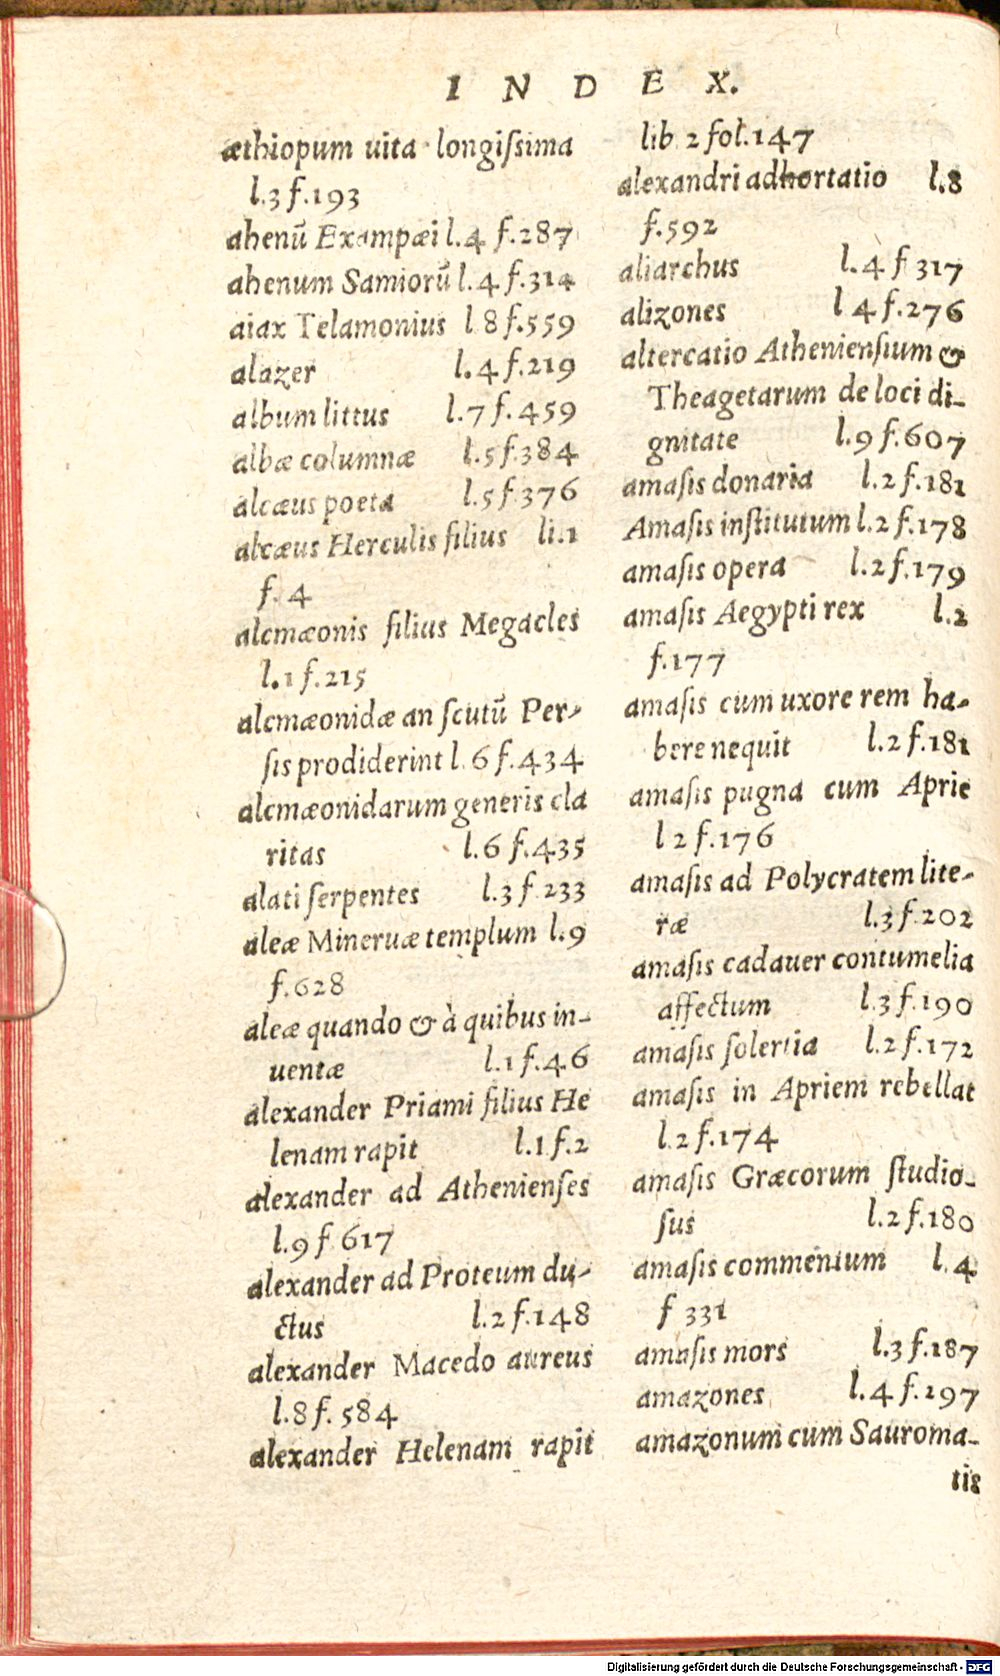 I N D E X.
æthiopum uita longiſsima
l.3 f.193
ahenũ Exampæi l.4 f.287
ahenum Samiorũ l.4 f.314
aiax Telamonius l 8 f.559
alazer l.4 f.219
album littus l.7 f.459
albæ columnæ l.5 f.384
alcæus poeta l.5 f.376
alcæus Herculis filius li.1
f. 4
alcmæonis filius Megacles
l.1 f.215
alcmæonidæ an ſcutũ Per-
ſis prodiderint l.6 f.434
alcmæonidarum generis cla
ritas l.6 f.435
alati ſerpentes l.3 f 233
aleæ Mineruæ templum l.9
f.628
aleæ quando & à quibus in-
uentæ l.1 f.46
alexander Priami filius He
lenam rapit l.1 f.2
alexander ad Athenienſes
l.9 f 617
alexander ad Proteum du-
ctus l.2 f.148
alexander Macedo aureus
l.8 f. 584
alexander Helenam rapit
lib 2 fol.147
alexandri adhortatio l.8
f.592
aliarchus l.4 f 317
alizones l 4 f.276
altercatio Athenienſium &
Theagetarum de loci di-
gnitate l.9 f.607
amaſis donaria l.2 f.181
Amaſis inſtitutum l.2 f.178
amaſis opera l.2 f.179
amaſis Aegypti rex l.2
f.177
amaſis cum uxore rem ha-
bere nequit l.2 f.181
amaſis pugna cum Aprie
l 2 f.176
amaſis ad Polycratem lite-
ræ l.3 f.202
amaſis cadauer contumelia
affectum l.3 f.190
amaſis ſolertia l.2 f.172
amaſis in Apriem rebellat
l.2 f.174
amaſis Græcorum ſtudio-
ſus l.2 f.180
amaſis commentum l.4
f 331
amaſis mors l.3 f.187
amazones l.4 f.297
amazonum cum Sauroma-
tis
Digitalisierung gefördert durch die Deutsche Forschungsgemeinschaft - DFG